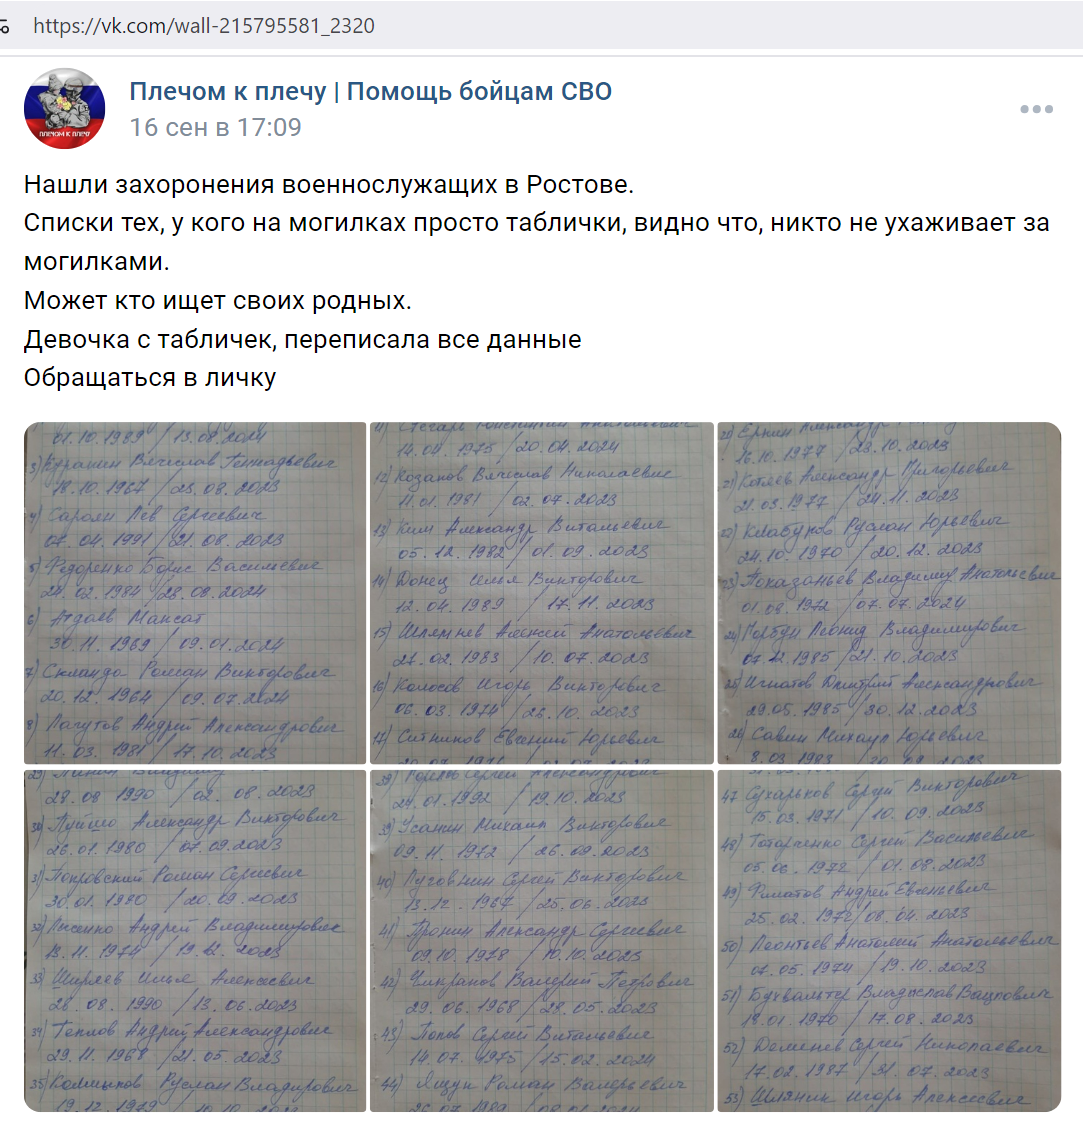 https://vk.com/wall-215795581_2320
Плечом к плечу | Помощь бойцам СВО
16 сен в 17:09
ПЛЕЧОМ К ПЛЕЧУ
Нашли захоронения военнослужащих в Ростове.
Списки тех, у кого на могилках просто таблички, видно что, никто не ухаживает за
могилками.
Может кто ищет своих родных.
Девочка с табличек, переписала все данные
Обращаться в личку
01.10.1989 / 13.08.2024
3) Вячеслав Геннадьевич
18.10.1967 / 23.08.2023
4) Сароян Лев Сергеевич
07.04.1991 / 21.08.2023
5) Федоренко Борис Васильевич
24.02.1984 / 28.08.2024
6) Атдаев Мансат
30.11.1989 / 09.01.2024
7) Роман Викторович
20.12.1964 / 09.07.2024
8) Лагутов Андрей Александрович
11.03.1981 / 17.10.2023
14.04.1975 / 20.04.2024
12) Козаков Вячеслав Николаевич
11.01.1981 / 02.07.2023
13) Ким Александр Витальевич
05.12.1982 / 01.09.2023
14) Донец Илья Викторович
12.04.1989 / 17.11.2023
15) Шлямнев Алексей Анатольевич
27.02.1983 / 10.07.2023
16) Колосов Игорь Викторович
06.03.1974 / 26.10.2023
17) Ситников Евгений Юрьевич
20) Еркин Александр
16.10.1977 / 23.10.2023
21) Котяев Александр Григорьевич
21.03.1977 / 24.11.2023
22) Клабуков Руслан Юрьевич
24.10.1970 / 20.12.2023
23) Показаньев Владимир Анатольевич
01.08.1972 / 07.07.2024
24) Леонид Владимирович
07.12.1985 / 21.10.2023
25) Игнатов Дмитрий Александрович
29.05.1985 / 30.12.2023
26) Савин Михаил Юрьевич
8.03.1983
29)
28.08 1990 / 02.08.2023
30) Александр Викторович
26.01.1980 / 07.09.2023
31) Покровский Роман Сергеевич
30.01.1980 / 20.09.2023
32) Лысенко Андрей Владимирович
13.11.1974 / 19.12.2023
33) Ширяев Илья Алексеевич
28.08.1990 / 13.06.2023
34) Теплов Андрей Александрович
29.11.1968 / 21.05.2023
35) Колмыков Руслан Владирович
19.12.1979
38) Сергей Александрович
24.01.1992 / 19.10.2023
39) Усанин Михаил Викторович
09.11.1972 / 26.09.2023
40) Луговнин Сергей Викторович
13.12.1967 / 25.06.2023
41) Пронин Александр Сергеевич
09.10.1978 / 10.10.2023
42) Чикранов Валерий Петрович
29.06.1968 / 28.05.2023
43) Попов Сергей Витальевич
14.07.1975 / 15.02.2024
44) Ящук Роман Валерьевич
47 Сухарьков Сергей Викторович
15.03.1971 / 10.09.2023
48) Татарченко Сергей Васильевич
05.06.1972 / 01.08.2023
49) Филатов Андрей Евгеньевич
25.02.1972 / 08.04.2023
50) Леонтьев Анатолий Анатольевич
07.05.1974 / 19.10.2023
51) Бухвальтер Владислав
18.01.1970 / 17.08.2023
52) Деменев Сергей Николаевич
17.02.1987 / 31.07.2023
53) Шляник Игорь Алексеевич